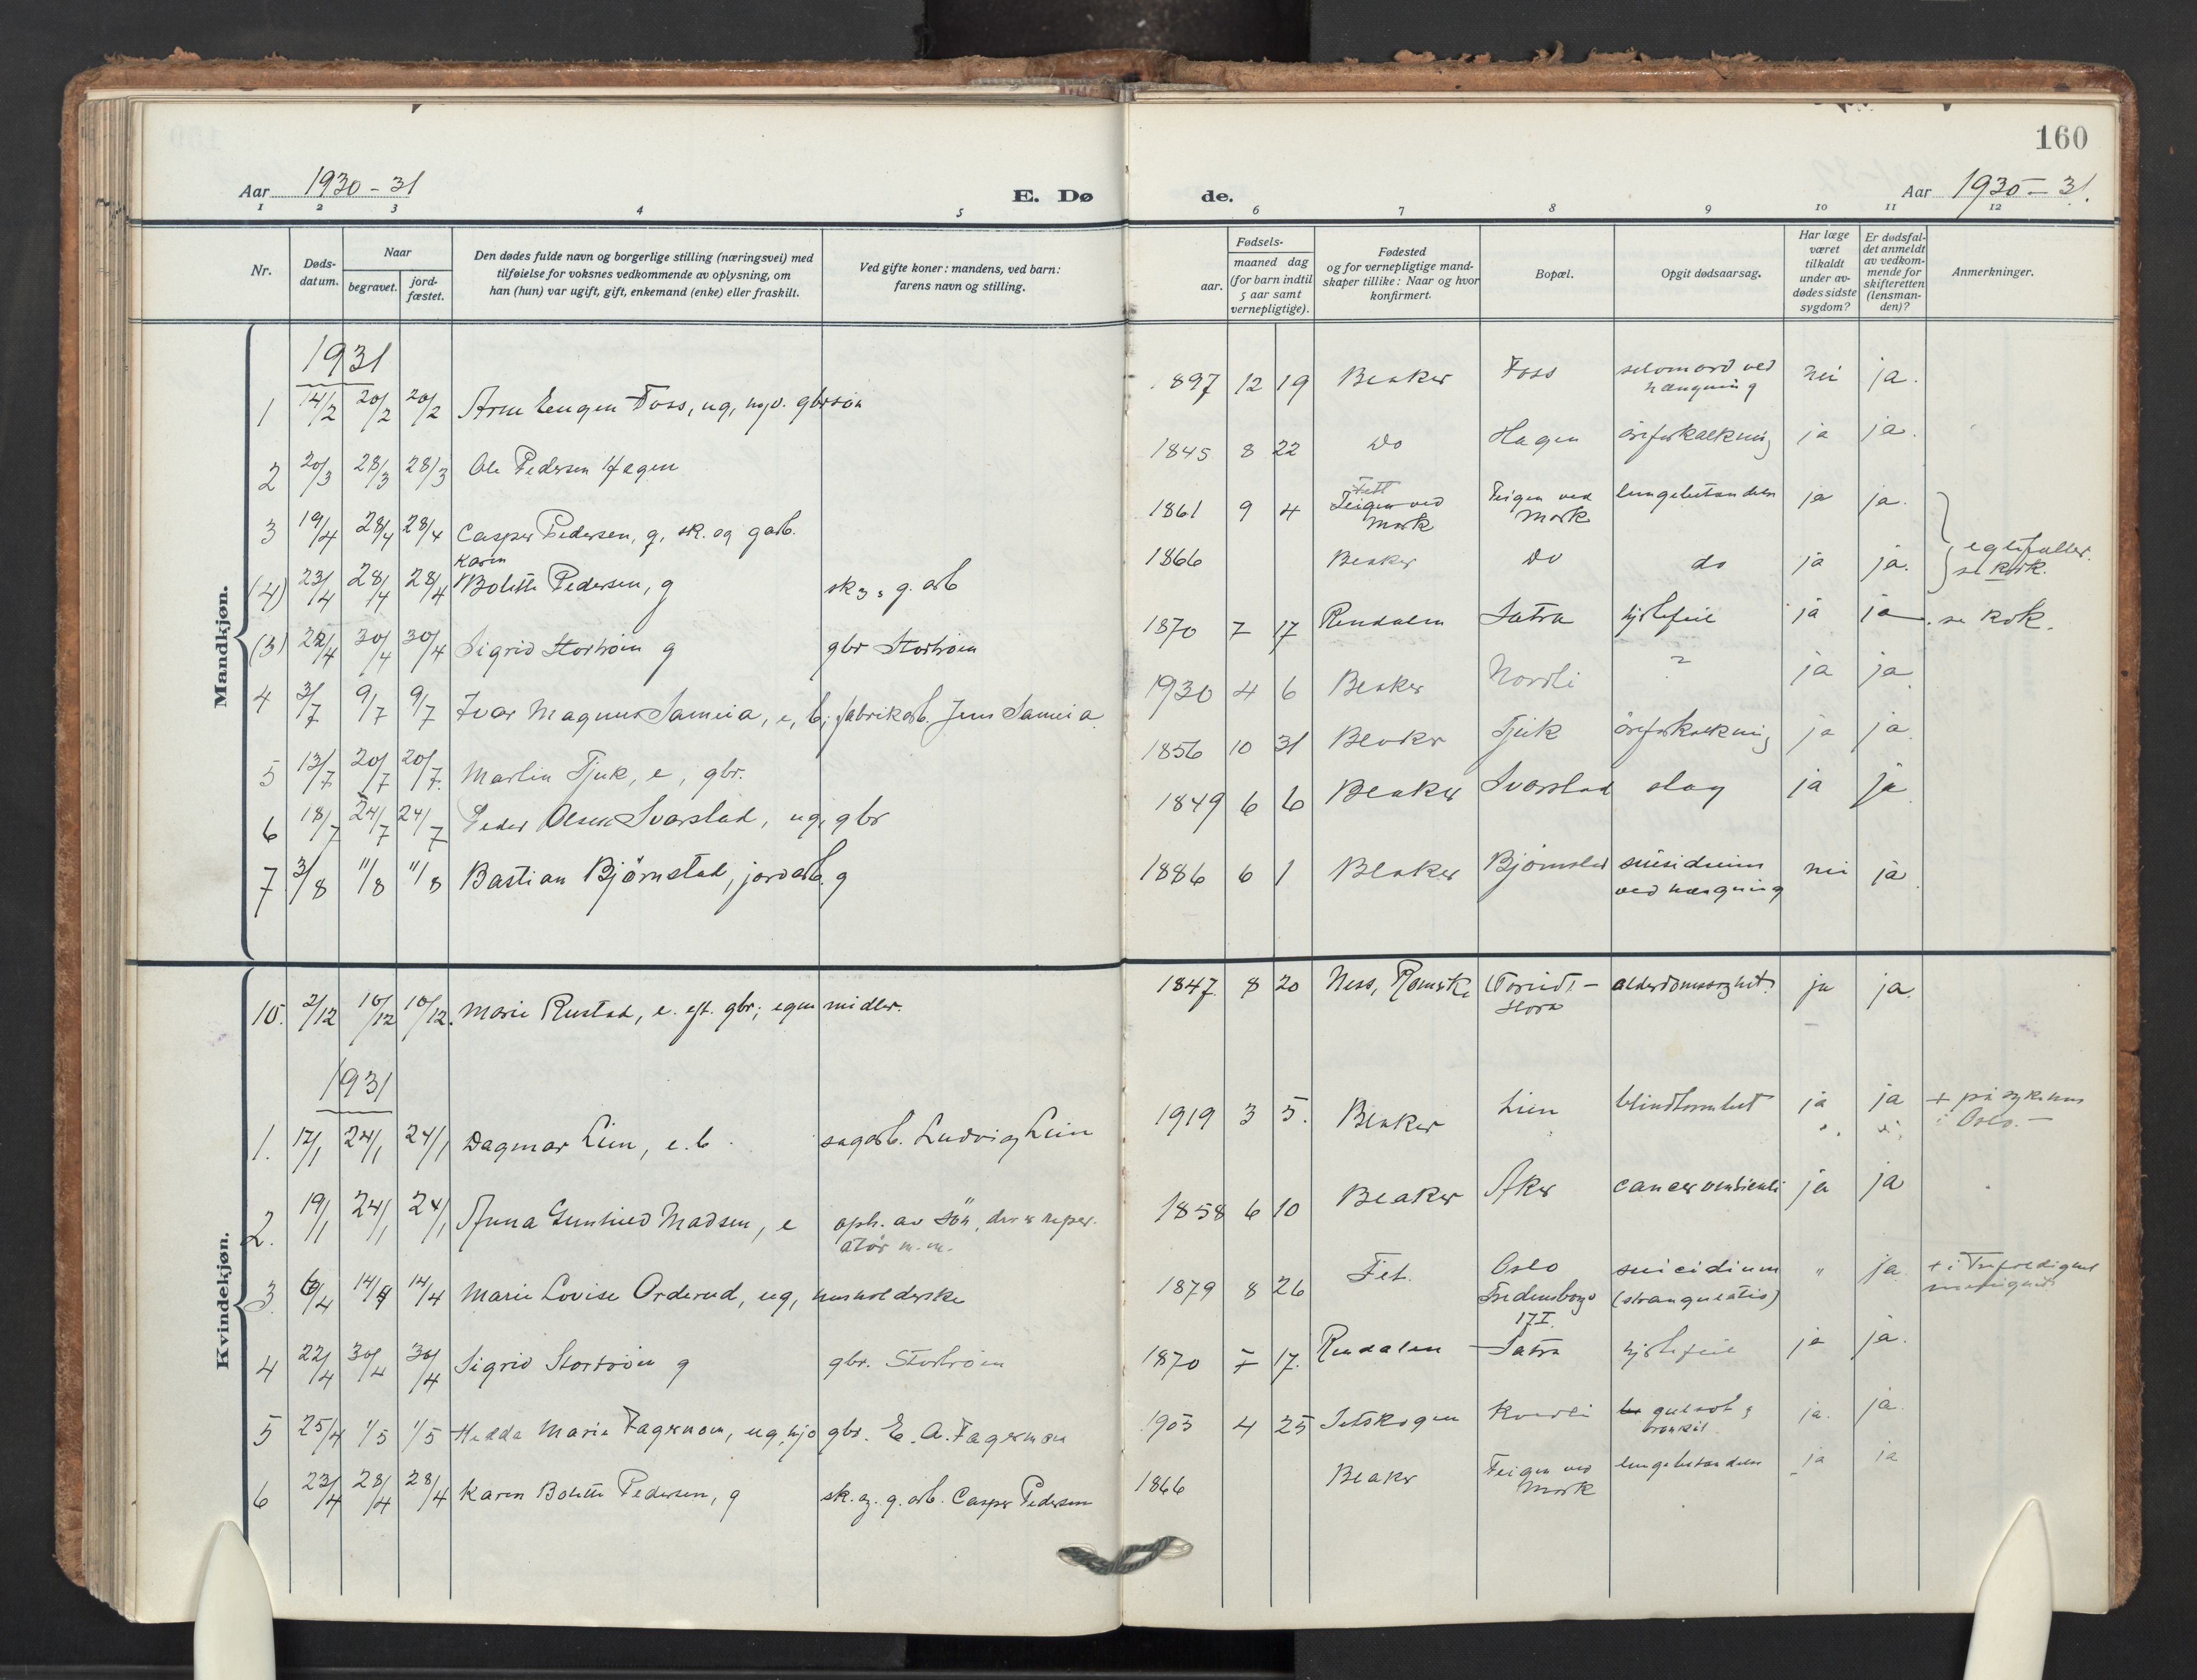 160
Aar 1930-31
E. Dø
de.
Aar 1930-31.
1 2 3 4 5 6 7 8 9 10 11 12
Nr.
Døds-
datum.
Naar
begravet.
jord-
fæstet.
Den dødes fulde navn og borgerlige stilling (næringsvei) med
tilføielse for voksnes vedkommende av oplysning, om
han (hun) var ugift, gift, enkemand (enke) eller fraskilt.
Ved gifte koner: mandens, ved barn:
farens navn og stilling.
Fødsels-
aar.
maaned dag
(for barn indtil
5 aar samt
vernepligtige).
Fødested
og for vernepligtige mand-
skaper tillike: Naar og hvor
konfirmert.
Bopæl.
Opgit dødsaarsag.
Har læge
været
tilkaldt
under av-
dødes sidste
sygdom?
Er dødsfal-
det anmeldt
av vedkom-
mende for
skifteretten
(lensman-
den)?
Anmerkninger.
Mandkjøn.
1931
1 14/2 20/2 20/2 Arne Eugen Foss, ug, gbrsøn 1897 12 19 Blaker Foss selvmord ved nei ja.
hængning
2 20/3 28/3 28/3 Ole Pedersen Hagen 1845 8 22 Do Hagen åreforkalkning ja ja.
Fett
3 19/4 28/4 28/4 Casper Pedersen, g, sk. og garb. 1861 9 4 Teigen ved Teigen ved lungebetændelse ja ja.
Mork Mork
Karen
(4) 23/4 28/4 28/4 Bolette Pedersen, g sk. g. arb 1866 Blaker Do do ja ja. egtefæller.
se kvk.
(3) 22/4 30/4 30/4 Sigrid Storhøien g gbr Storhøien 1870 7 17 Rendalen Sætra hjertefeil ja ja. se kvk.
4 3/7 9/7 9/7 Ivar Magnus Sameia, e, b; fabrikarb. Jens Sameia 1930 4 6 Blaker Nordli ? ja ja.
5 13/7 20/7 20/7 Martin Tjuk, e, gbr. 1856 10 31 Blaker Tjuk åreforkalkning ja ja.
6 18/7 24/7 24/7 Peder Olsen Svarstad, ug, gbr 1849 6 6 Blaker Svarstad slag ja ja
7 3/8 11/8 11/8 Bastian Bjørnstad, jordarb. g 1886 6 1 Blaker Bjørnstad suisidium nei ja.
ved hængning
Kvindekjøn.
10. 2/12 10/12 10/12. Marie Rustad, e. eft. gbr; egne midler. 1847. 8 20 Ness, Romerike alderdomssvakhet. ja ja.
1931
1. 17/1 24/1 24/1 Dagmar Lien, e. b. sagarb. Ludvig Lien 1919 3 5. Blaker Lien blindtarmbet ja ja + på sykehus
i Oslo. —
2. 19/1 24/1 24/1 Anna Gunhild Madsen, e oph. av søn, der er repar- 1858 6 10 Blaker Aker cancer ventriculi ja ja
atør m.m.
3. 6/4 14/4 14/4 Marie Lovise Orderud, ug, husholderske 1879 8 26 Fet. Oslo suicidium " ja.
Fredensborgv (strangulatio)
17 I.
4 22/4 30/4 30/4 Sigrid Storhøien g gbr. Storhøien 1870 7 17. Rendalen Sætra hjertefeil ja ja.
5 25/4 1/5 1/5 Hedda Marie Fagermoen, ug, hjo gbr. E. A. Fagermoen 1903 4 25 Setskogen gulsot & ja. ja.
bronkit
6 23/4 28/4 28/4 Karen Bolette Pedersen, g sk. og. g. arb. Casper Pedersen 1866 Blaker Teigen ved lungebetændelse ja ja
Mork